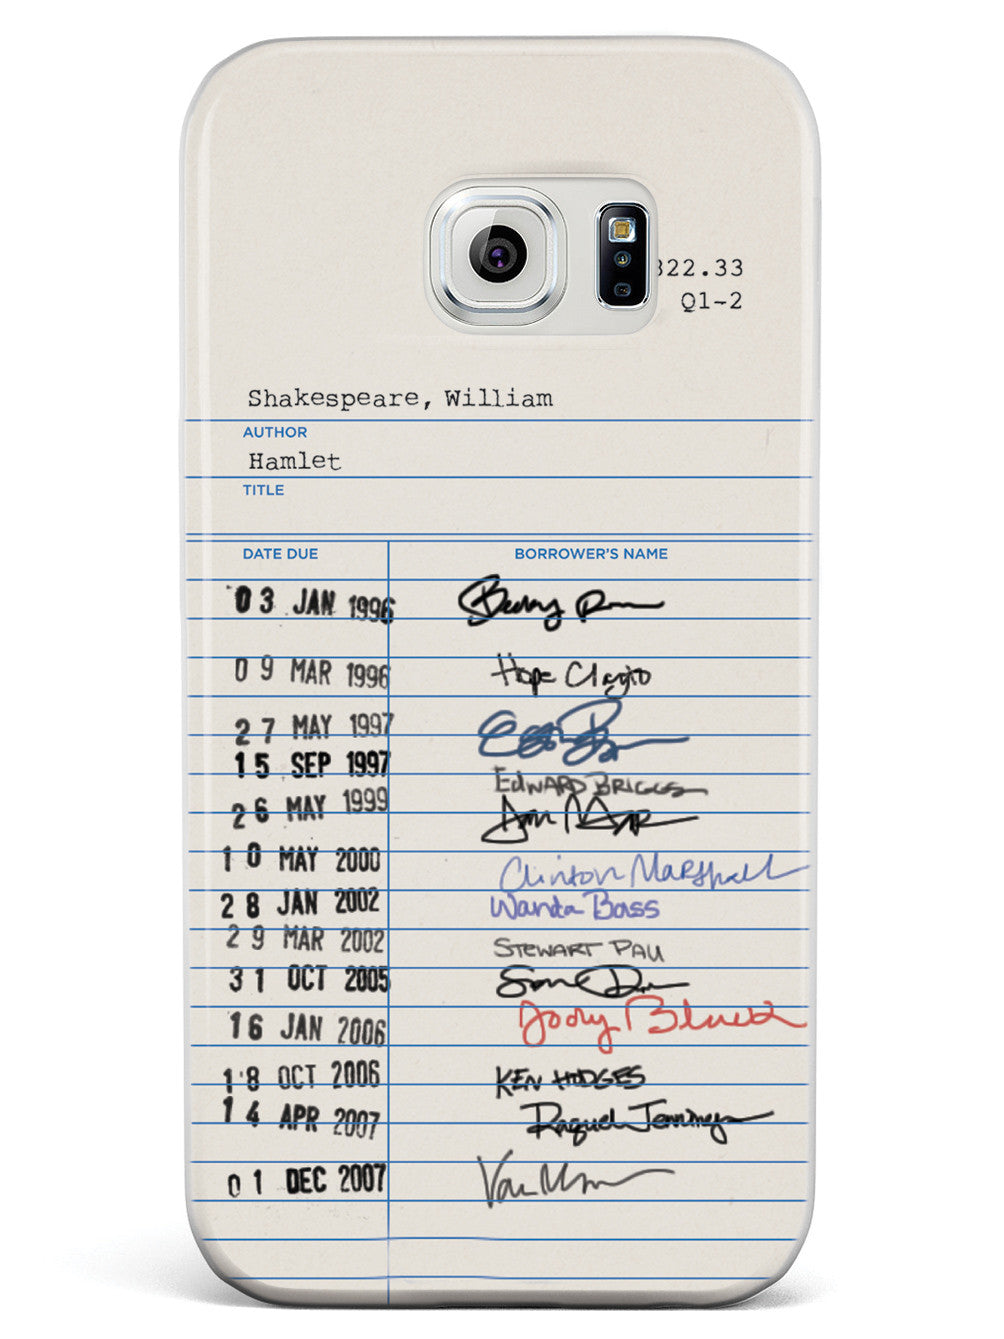 322.33
Q1-2
Shakespeare, William
AUTHOR
Hamlet
TITLE
DATE DUE BORROWER'S NAME
03 JAN 1996
09 MAR 1996 Hope
27 MAY 1997
15 SEP 1997 EDWARD BRIGGS
26 MAY 1999
10 MAY 2000 Clinton Marshall
28 JAN 2002 Wanda Bass
29 MAR 2002 STEWART PAU
31 OCT 2005
16 JAN 2006 Jody Black
18 OCT 2006 KEN HODGES
14 APR 2007 Raquel Jennings
01 DEC 2007